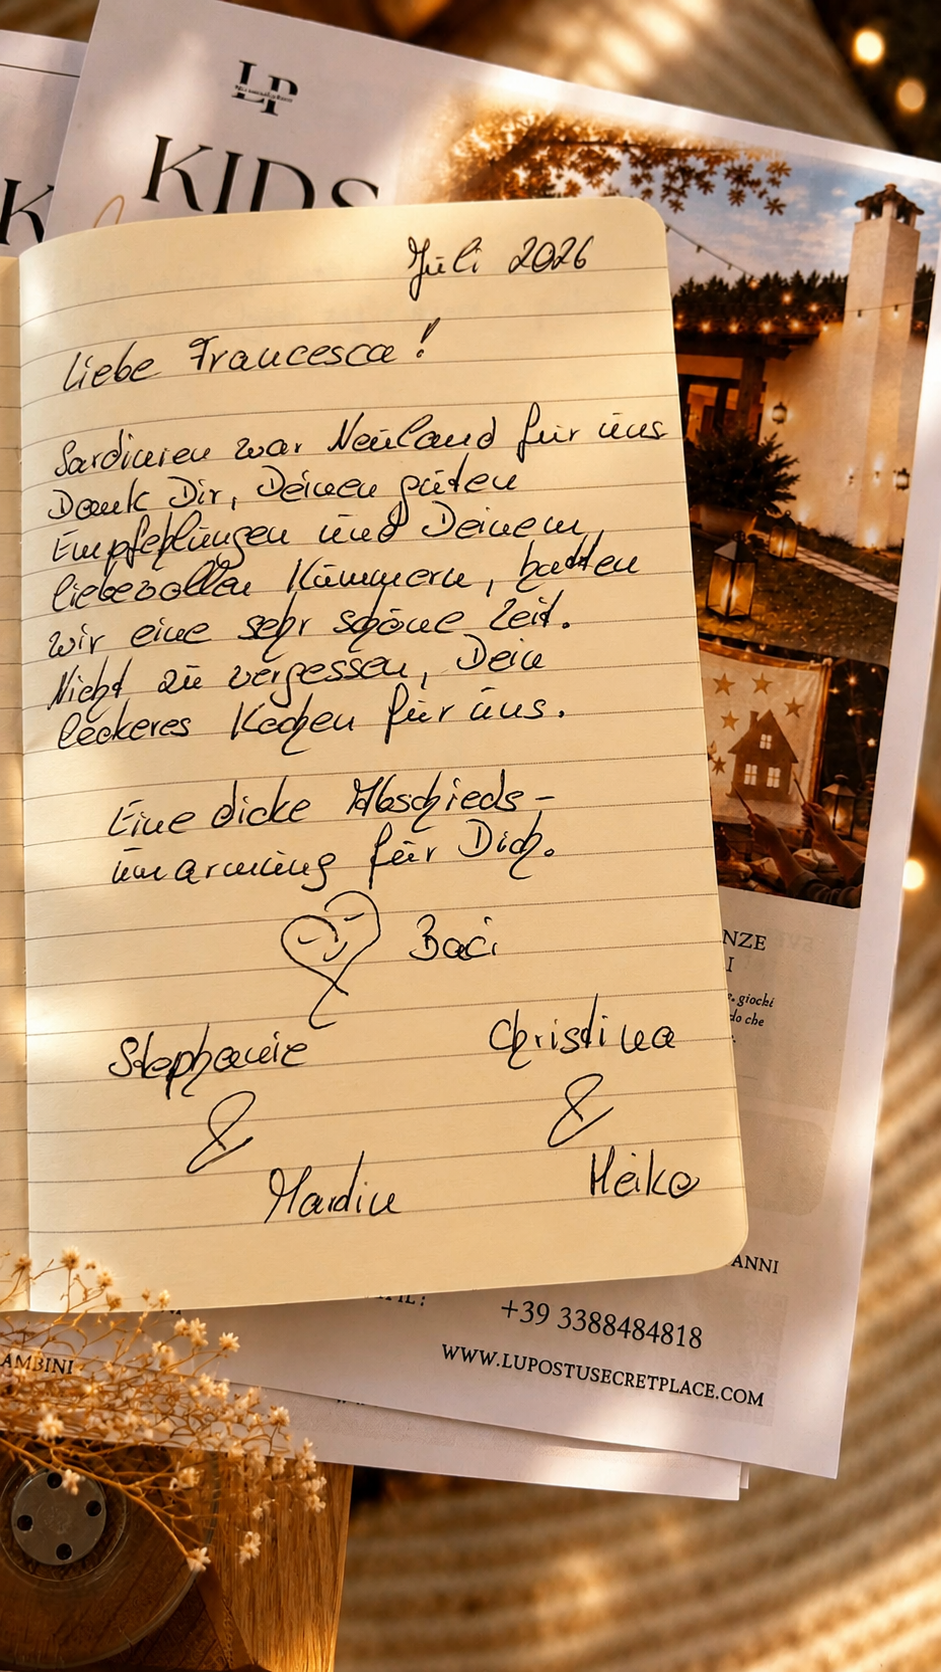 LP
KIDS
K
Juli 2026
Liebe Francesca!
Sardinien war Neuland für uns
Dank Dir, Deinen guten
Empfehlungen und Deinem
liebevollen Kümmern, hatten
wir eine sehr schöne Zeit.
Nicht zu vergessen, Dein
leckeres Kochen für uns.
Eine dicke Abschieds-
umarmung für Dich.
Baci
Stephanie Christina
& &
Martin Heiko
NZE
I
giochi
do che
ANNI
+39 3388484818
WWW.LUPOSTUSECRETPLACE.COM
AMBINI